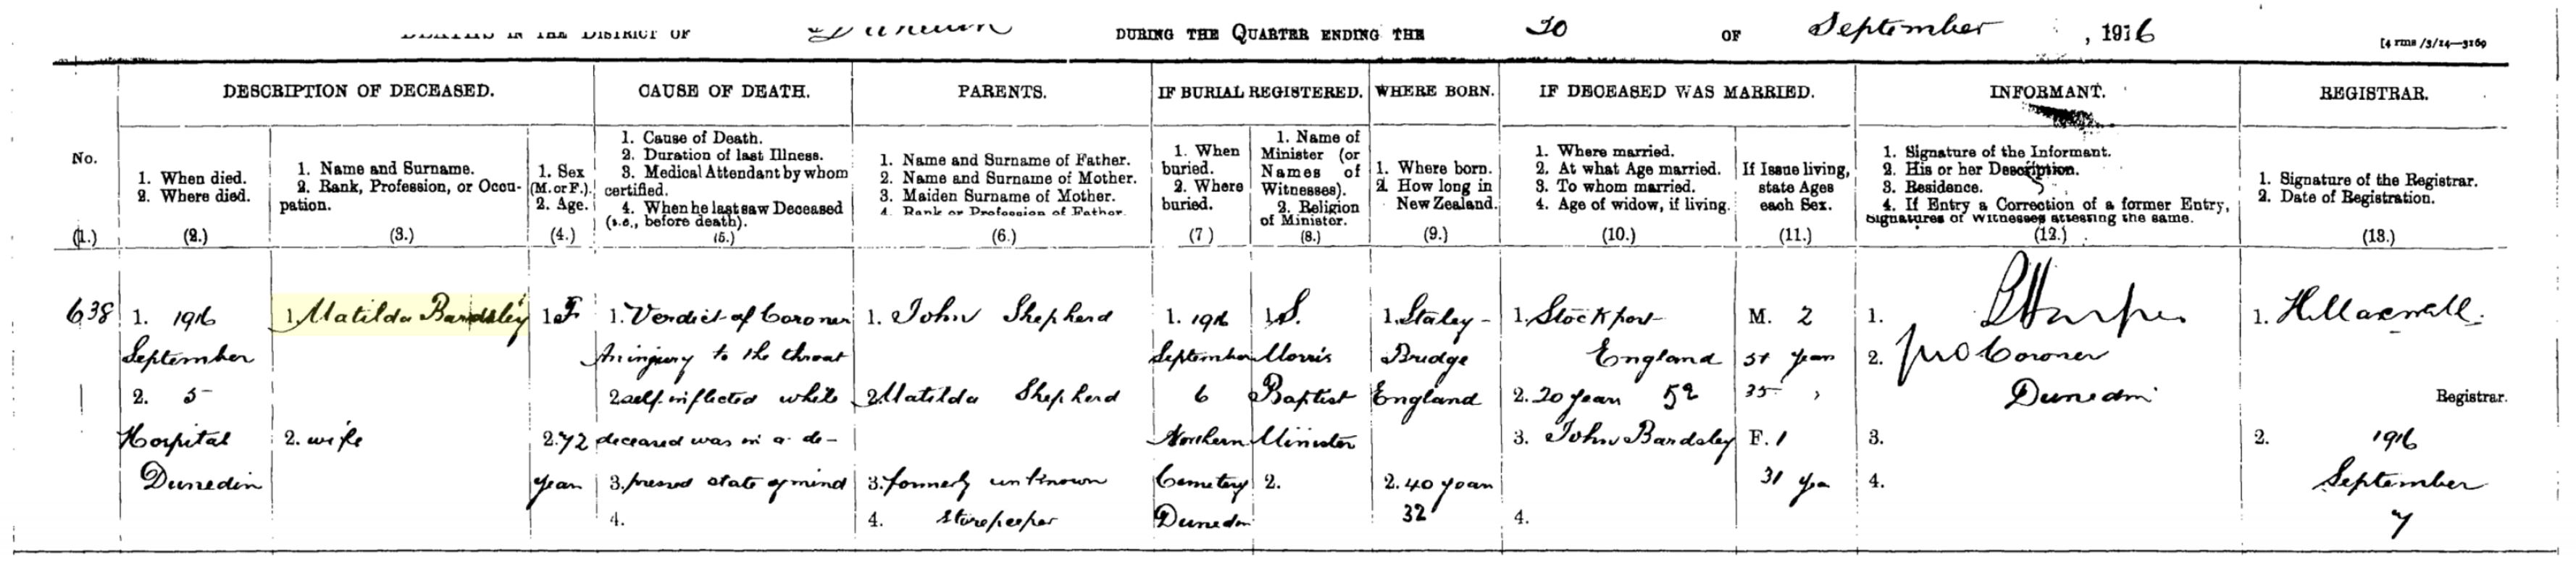 DEATHS IN THE DISTRICT OF Dunedin DURING THE QUARTER ENDING THE 30 OF September, 1916 [4 rms/3/14—3169
DESCRIPTION OF DECEASED.
CAUSE OF DEATH.
PARENTS.
IF BURIAL REGISTERED.
WHERE BORN.
IF DECEASED WAS MARRIED.
INFORMANT.
REGISTRAR.
No.
(1.)
1. When died.
2. Where died.
(2.)
1. Name and Surname.
2. Rank, Profession, or Occu-
pation.
(3.)
1. Sex
(M. or F.).
2. Age.
(4.)
1. Cause of Death.
2. Duration of last Illness.
3. Medical Attendant by whom
certified.
4. When he last saw Deceased
(i.e., before death).
(5.)
1. Name and Surname of Father.
2. Name and Surname of Mother.
3. Maiden Surname of Mother.
4. Rank or Profession of Father.
(6.)
1. When
buried.
2. Where
buried.
(7)
1. Name of
Minister (or
Names of
Witnesses).
2. Religion
of Minister.
(8.)
1. Where born.
2. How long in
New Zealand.
(9.)
1. Where married.
2. At what Age married.
3. To whom married.
4. Age of widow, if living.
(10.)
If Issue living,
state Ages
each Sex.
(11.)
1. Signature of the Informant.
2. His or her Description.
3. Residence.
4. If Entry a Correction of a former Entry,
signatures of witnesses attesting the same.
(12.)
1. Signature of the Registrar.
2. Date of Registration.
(13.)
638
1. 1916
September
2. 5
Hospital
Dunedin
1. Matilda Bardsley
2. wife
1. F
2. 72
years
1. Verdict of Coroner
An injury to the throat
2. self inflicted while
deceased was in a de-
3. pressed state of mind
4.
1. John Shepherd
2. Matilda Shepherd
3. formerly unknown
4. storekeeper
1. 1916
September
6
Northern
Cemetery
Dunedin
1. S.
Morris
Baptist
Minister
2.
1. Staley-
Bridge
England
2. 40 years
32
1. Stockport
England
2. 20 years 52
3. John Bardsley
4.
M. 2
51 years
35 "
F. 1
31 yrs
1.
2. Coroner
Dunedin
3.
4.
1. H Maxwell.
Registrar.
2. 1916
September
7